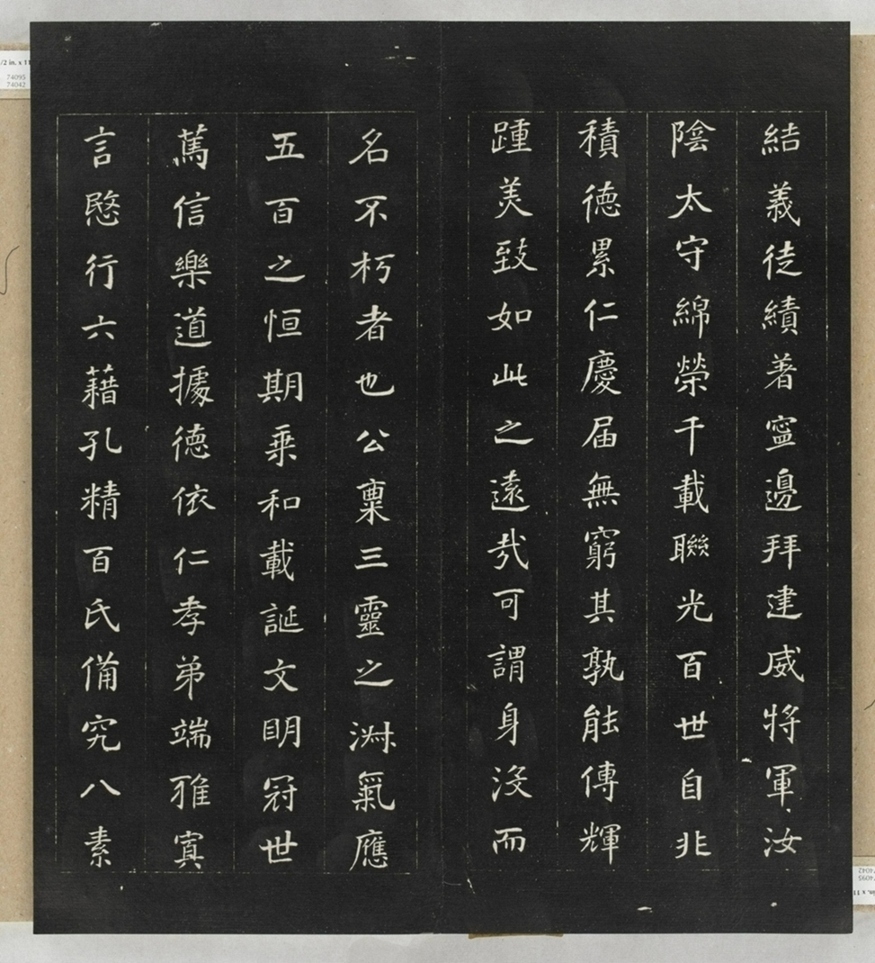 結義徒績著寍邊拜建威將軍汝
陰太守綿榮千載聯光百世自非
積德累仁慶届無窮其孰能傳輝
踵美致如此之遠㢤可謂身沒而
名不朽者也公稟三靈之淋氣應
五百之恒期乗和載誕文眀冠世
篤信樂道據德依仁孝弟端雅寘
言愍行六藉孔精百氏俻究八素
/2 in. x 11
74095
74042